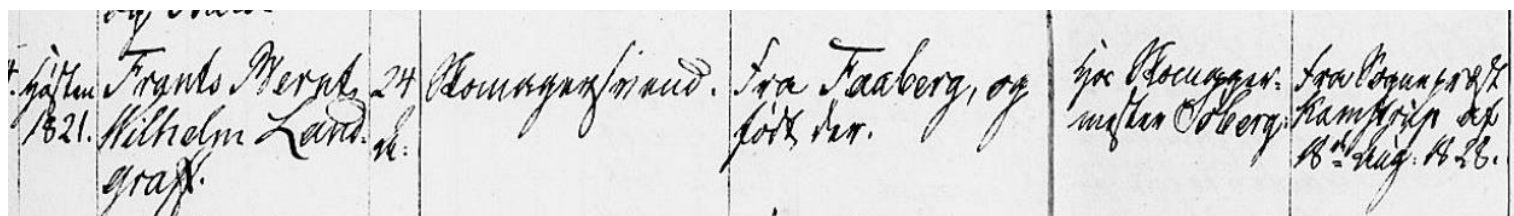 Høsten
1821.
Frants Bernt
Wilhelm Land-
graff.
24
Skomagersvend.
Fra Faaberg, og
født der.
hos Skomager-
mester Soberg.
Fra Sogneprest
Kamstrup af
18de Aug. 1828.